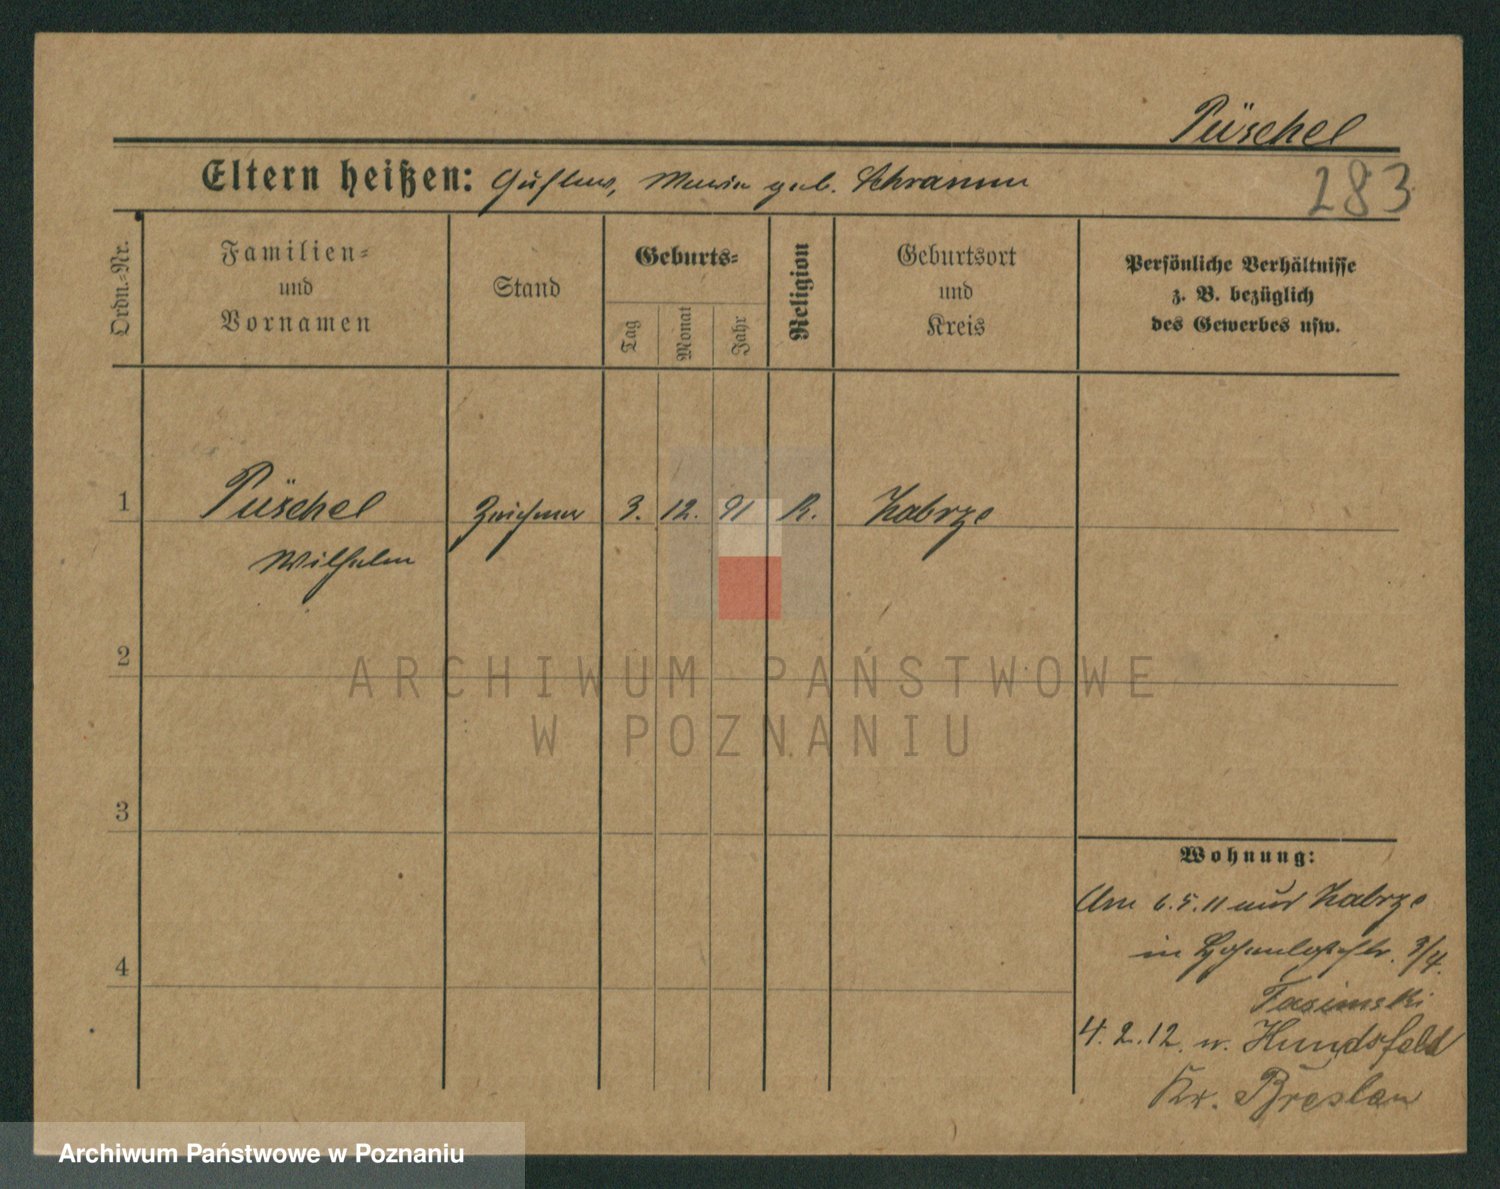 Püschel
283
Eltern heißen: Gustav, Maria geb. Schramm
Ordn.-Nr.
Familien-
und
Vornamen
Stand
Geburts-
Tag
Monat
Jahr
Religion
Geburtsort
und
Kreis
Persönliche Verhältnisse
z. B. bezüglich
des Gewerbes usw.
1
Püschel
Zeichner
3.
12.
91
K.
Zabrze
Wilhelm
2
ARCHIWUM PAŃSTWOWE
W POZNANIU
3
Wohnung:
Am 6.5.11 aus Zabrze
in 3/4.
4
4.2.12. n. Hundsfeld
Kr. Breslau
Archiwum Państwowe w Poznaniu